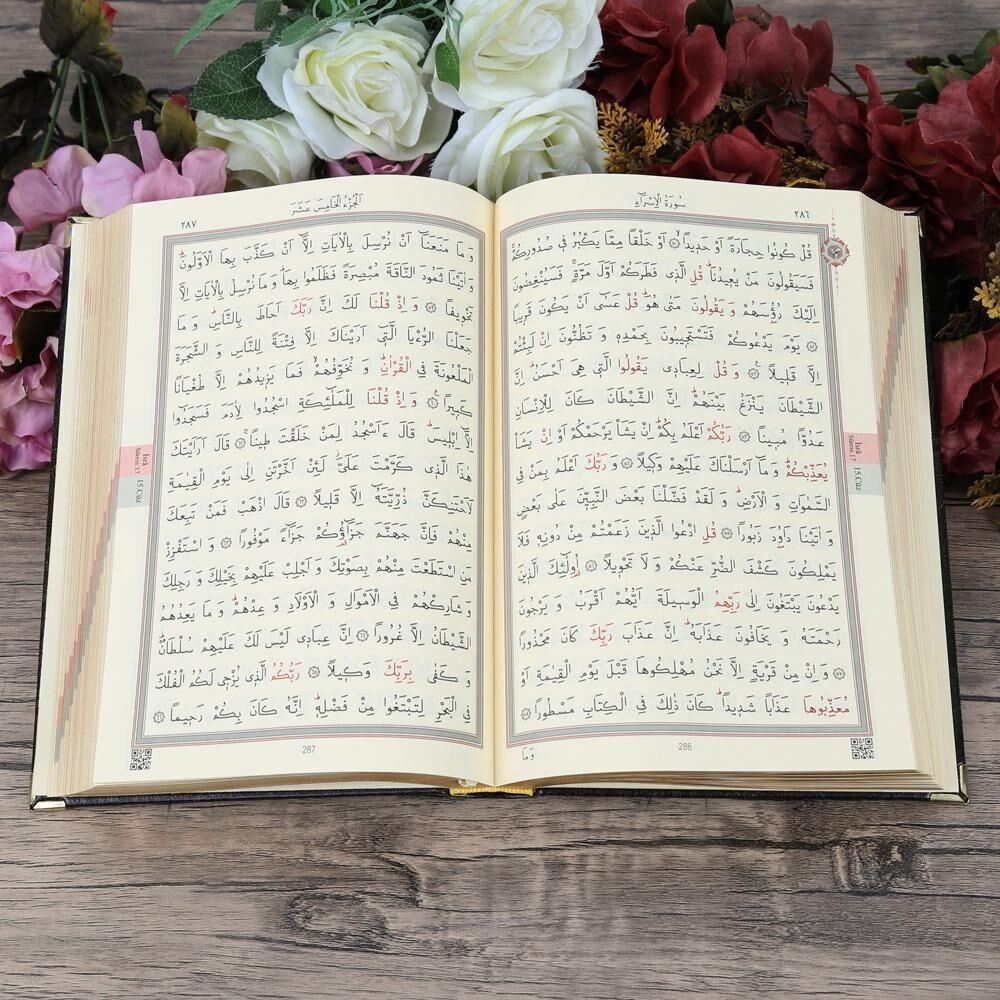 سُورَةُ الْاِسْرَاءِ
٢٨٦
قُلْ كُونُوا حِجَارَةً اَوْ حَدِيداًۙ ۝٥٠ اَوْ خَلْقاً مِمَّا يَكْبُرُ فٖي صُدُورِكُمْۚ
فَسَيَقُولُونَ مَنْ يُعٖيدُنَاۜ قُلِ الَّذٖي فَطَرَكُمْ اَوَّلَ مَرَّةٍۚ فَسَيُنْغِضُونَ
اِلَيْكَ رُؤُ۫سَهُمْ وَ يَقُولُونَ مَتٰى هُوَۜ قُلْ عَسٰٓى اَنْ يَكُونَ قَرٖيباً
۝٥١ يَوْمَ يَدْعُوكُمْ فَتَسْتَجٖيبُونَ بِحَمْدِهٖ وَ تَظُنُّونَ اِنْ لَبِثْتُمْ
اِلَّا قَلٖيلاً۟ ۝٥٢ وَ قُلْ لِعِبَادٖي يَقُولُوا الَّتٖي هِيَ اَحْسَنُۜ اِنَّ
الشَّيْطَانَ يَنْزَغُ بَيْنَهُمْۜ اِنَّ الشَّيْطَانَ كَانَ لِلْاِنْسَانِ
عَدُواًّ مُبٖيناً ۝٥٣ رَبُّكُمْ اَعْلَمُ بِكُمْۜ اِنْ يَشَأْ يَرْحَمْكُمْ اَوْ اِنْ يَشَأْ
يُعَذِّبْكُمْۜ وَ مَٓا اَرْسَلْنَاكَ عَلَيْهِمْ وَكٖيلاً ۝٥٤ وَ رَبُّكَ اَعْلَمُ بِمَنْ فِي
السَّمٰوَاتِ وَ الْاَرْضِۜ وَ لَقَدْ فَضَّلْنَا بَعْضَ النَّبِيّٖنَ عَلٰى بَعْضٍ
وَ اٰتَيْنَا دَاوُ۫دَ زَبُوراً ۝٥٥ قُلِ ادْعُوا الَّذٖينَ زَعَمْتُمْ مِنْ دُونِهٖ فَلَا
يَمْلِكُونَ كَشْفَ الضُّرِّ عَنْكُمْ وَ لَا تَحْوٖيلاً ۝٥٦ اُو۬لٰٓئِكَ الَّذٖينَ
يَدْعُونَ يَبْتَغُونَ اِلٰى رَبِّهِمُ الْوَسٖيلَةَ اَيُّهُمْ اَقْرَبُ وَ يَرْجُونَ
رَحْمَتَهُ وَ يَخَافُونَ عَذَابَهُۜ اِنَّ عَذَابَ رَبِّكَ كَانَ مَحْذُوراً
۝٥٧ وَ اِنْ مِنْ قَرْيَةٍ اِلَّا نَحْنُ مُهْلِكُوهَا قَبْلَ يَوْمِ الْقِيٰمَةِ اَوْ
مُعَذِّبُوهَا عَذَاباً شَدٖيداًۜ كَانَ ذٰلِكَ فِي الْكِتَابِ مَسْطُوراً ۝٥٨
وَمَا
286
İsrâ
Sûresi:17
15.Cüz
اَلْجُزْءُ الْخَامِسَ عَشَرَ
٢٨٧
وَ مَا مَنَعَنَٓا اَنْ نُرْسِلَ بِالْاٰيَاتِ اِلَّٓا اَنْ كَذَّبَ بِهَا الْاَوَّلُونَۜ
وَ اٰتَيْنَا ثَمُودَ النَّاقَةَ مُبْصِرَةً فَظَلَمُوا بِهَاۜ وَ مَا نُرْسِلُ بِالْاٰيَاتِ اِلَّا
تَخْوٖيفاً ۝٥٩ وَ اِذْ قُلْنَا لَكَ اِنَّ رَبَّكَ اَحَاطَ بِالنَّاسِۜ وَ مَا
جَعَلْنَا الرُّءْيَا الَّتٖٓي اَرَيْنَاكَ اِلَّا فِتْنَةً لِلنَّاسِ وَ الشَّجَرَةَ
الْمَلْعُونَةَ فِي الْقُرْاٰنِۜ وَ نُخَوِّفُهُمْۙ فَمَا يَزٖيدُهُمْ اِلَّا طُغْيَاناً
كَبٖيراً۟ ۝٦٠ وَ اِذْ قُلْنَا لِلْمَلٰٓئِكَةِ اسْجُدُوا لِاٰدَمَ فَسَجَدُٓوا
اِلَّٓا اِبْلٖيسَۜ قَالَ ءَاَسْجُدُ لِمَنْ خَلَقْتَ طٖيناًۚ ۝٦١ قَالَ اَرَاَيْتَكَ
هٰذَا الَّذٖي كَرَّمْتَ عَلَيَّۘ لَئِنْ اَخَّرْتَنِ اِلٰى يَوْمِ الْقِيٰمَةِ
لَاَحْتَنِكَنَّ ذُرِّيَّتَهُٓ اِلَّا قَلٖيلاً ۝٦٢ قَالَ اذْهَبْ فَمَنْ تَبِعَكَ
مِنْهُمْ فَاِنَّ جَهَنَّمَ جَزَٓاؤُ۬كُمْ جَزَٓاءً مَوْفُوراً ۝٦٣ وَ اسْتَفْزِزْ
مَنِ اسْتَطَعْتَ مِنْهُمْ بِصَوْتِكَ وَ اَجْلِبْ عَلَيْهِمْ بِخَيْلِكَ وَ رَجِلِكَ
وَ شَارِكْهُمْ فِي الْاَمْوَالِ وَ الْاَوْلَادِ وَ عِدْهُمْۜ وَ مَا يَعِدُهُمُ
الشَّيْطَانُ اِلَّا غُرُوراً ۝٦٤ اِنَّ عِبَادٖي لَيْسَ لَكَ عَلَيْهِمْ سُلْطَانٌۜ
وَ كَفٰى بِرَبِّكَ وَكٖيلاً ۝٦٥ رَبُّكُمُ الَّذٖي يُزْجٖي لَكُمُ الْفُلْكَ
فِي الْبَحْرِ لِتَبْتَغُوا مِنْ فَضْلِهٖۜ اِنَّهُ كَانَ بِكُمْ رَحٖيماً ۝٦٦
287
İsrâ
Sûresi:17
15.Cüz